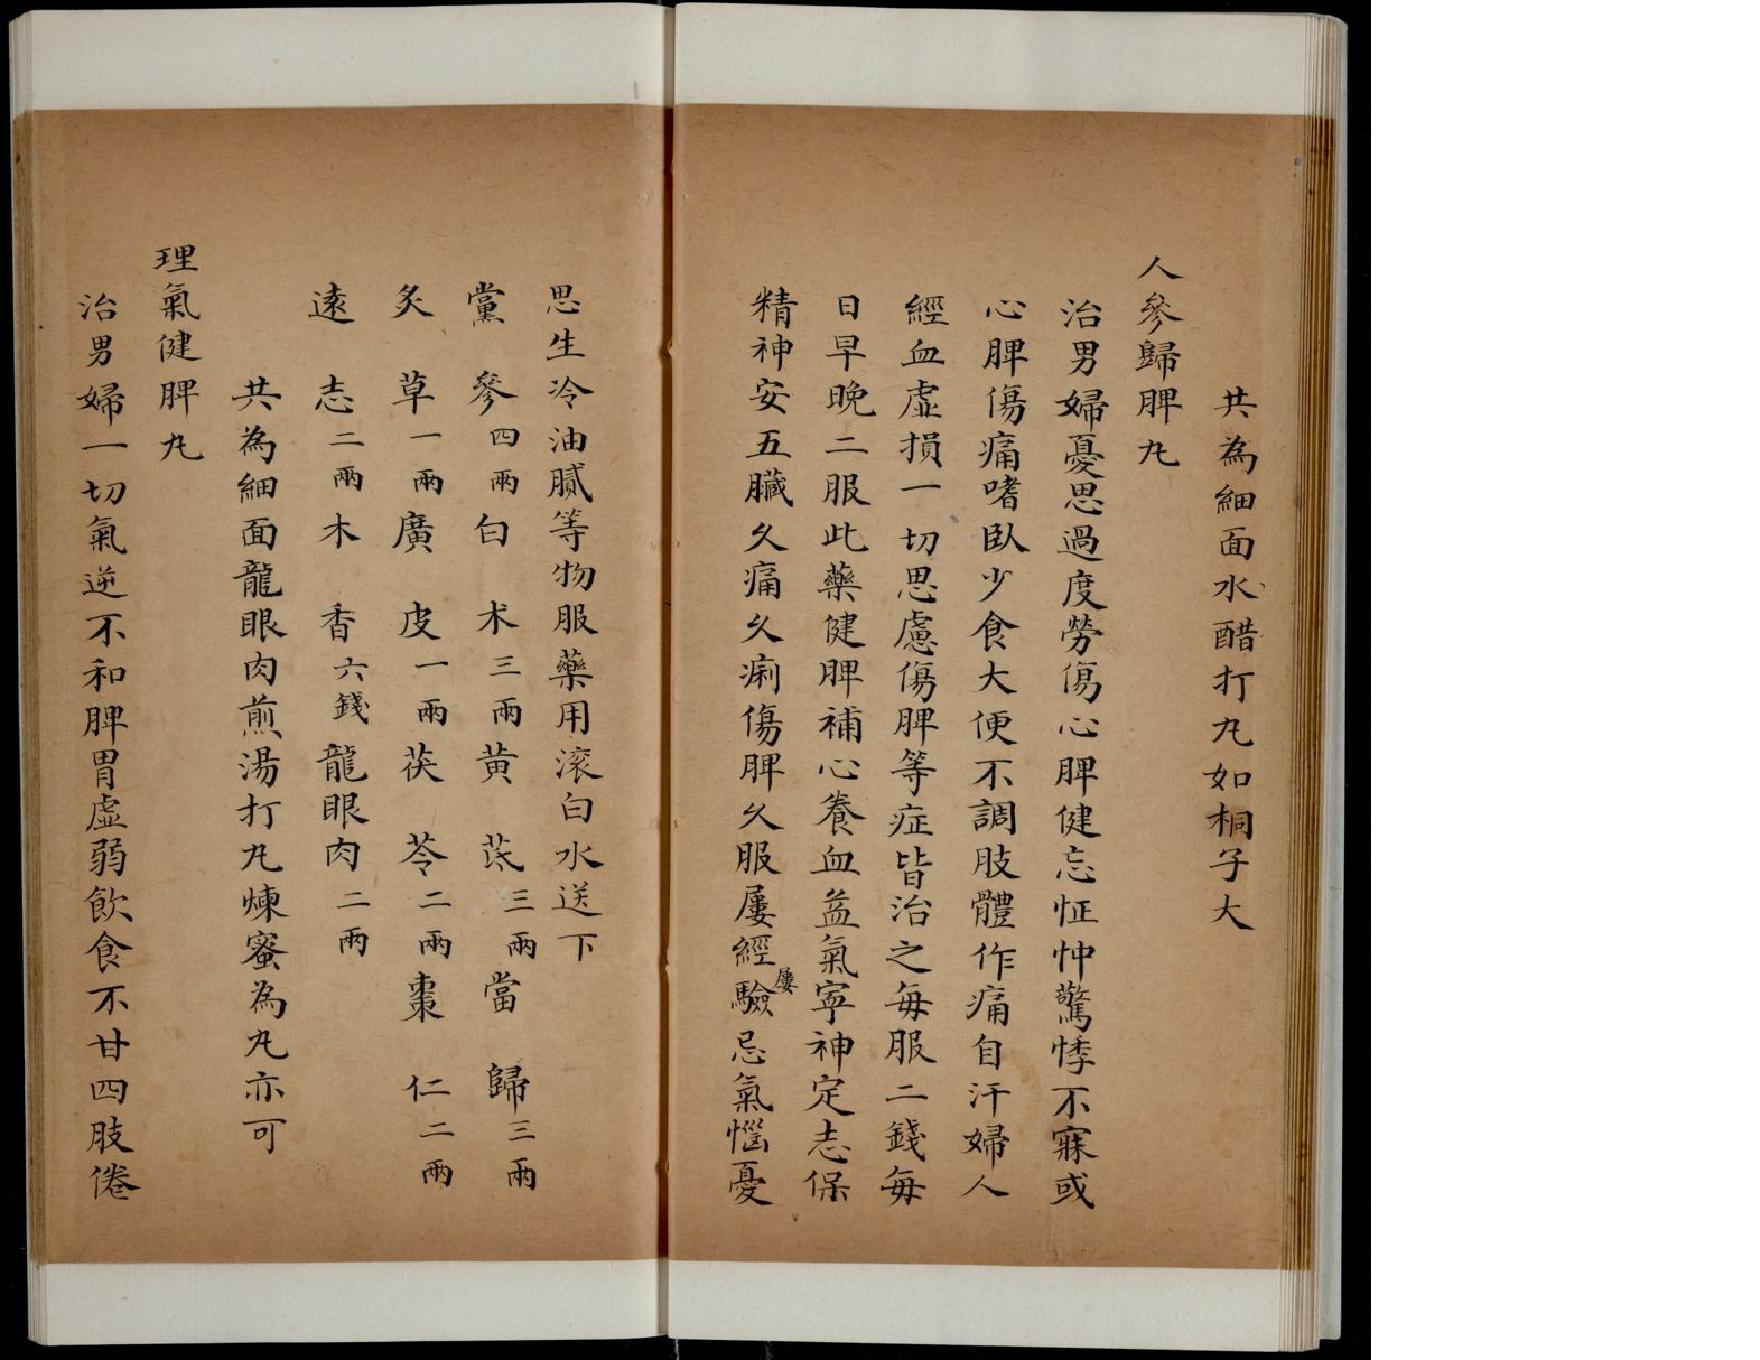 共為細面水醋打丸如桐子大
人參歸脾丸
治男婦憂思過度勞傷心脾健忘怔忡驚悸不寐或
心脾傷痛嗜臥少食大便不調肢體作痛自汗婦人
經血虛損一切思慮傷脾等症皆治之每服二錢每
日早晚二服此藥健脾補心養血益氣寧神定志保
精神安五臟久痛久痢傷脾久服屢經屢驗忌氣惱憂
思生冷油膩等物服藥用滾白水送下
黨參四兩白术三兩黃茋三兩當歸三兩
炙草一兩廣皮一兩茯苓二兩棗仁二兩
遠志二兩木香六錢龍眼肉二兩
共為細面龍眼肉煎湯打丸煉蜜為丸亦可
理氣健脾丸
治男婦一切氣逆不和脾胃虛弱飲食不甘四肢倦